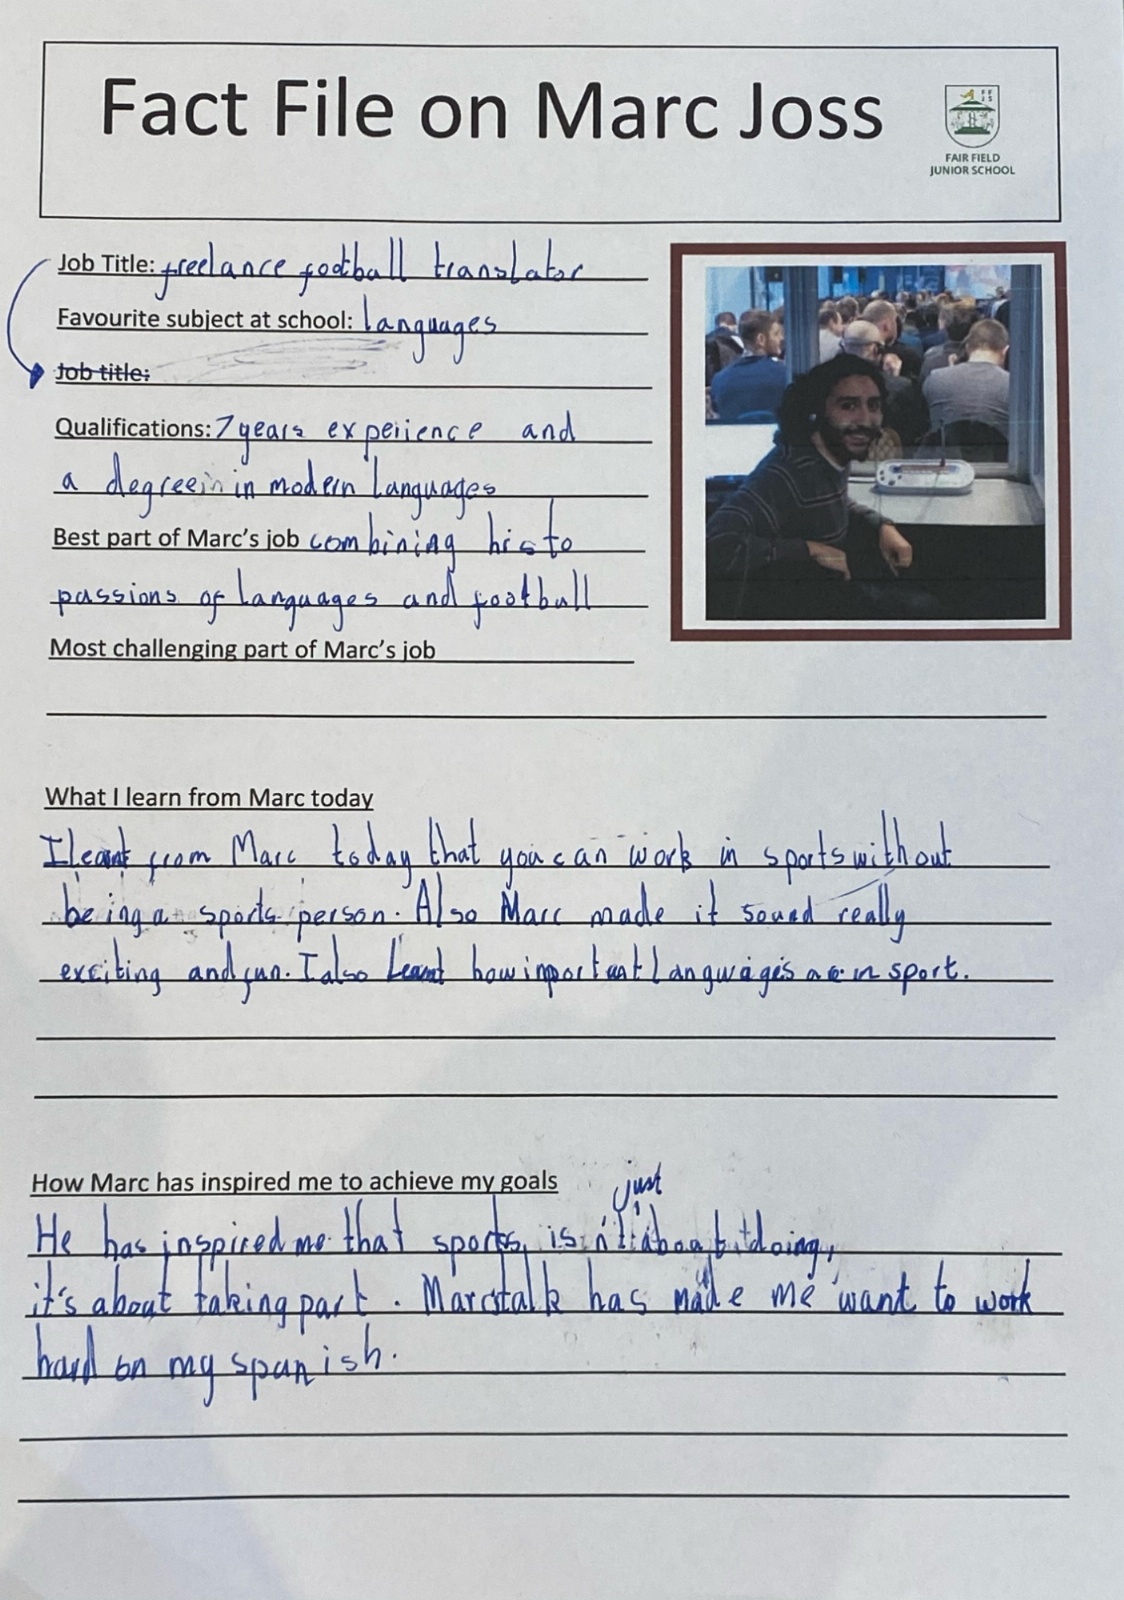 Fact File on Marc Joss
FF
JS
FAIR FIELD
JUNIOR SCHOOL
Job Title: freelance football translator
Favourite subject at school: languages
Job title:
Qualifications: 7 years experience and
a degree in in modern languages
Best part of Marc's job combining his to
passions of languages and football
Most challenging part of Marc's job
What I learn from Marc today
I leant from Marc today that you can work in sports without
being a sports person. Also Marc made it sound really
exciting and fun. I also leant how important languages are in sport.
How Marc has inspired me to achieve my goals
just
He has inspired me that sports, isn't about doing,
it's about taking part. Marcs talk has made me want to work
hard on my spanish.